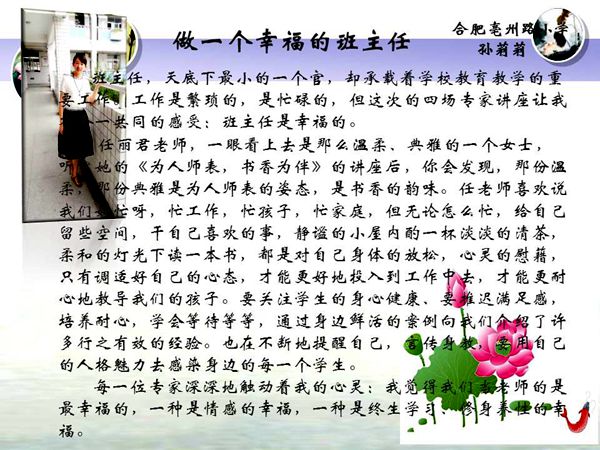 做一个幸福的班主任
合肥亳州路小学
孙莉莉
班主任，天底下最小的一个官，却承载着学校教育教学的重
要工作。工作是繁琐的，是忙碌的，但这次的四场专家讲座让我
一共同的感受：班主任是幸福的。
任丽君老师，一眼看上去是那么温柔、典雅的一个女士，
听 她的《为人师表，书香为伴》的讲座后，你会发现，那份温
柔，那份典雅是为人师表的姿态，是书香的韵味。任老师喜欢说
我们 忙呀，忙工作，忙孩子，忙家庭，但无论怎么忙，给自己
留些空间，干自己喜欢的事，静谧的小屋内酌一杯淡淡的清茶，
柔和的灯光下读一本书，都是对自己身体的放松，心灵的慰藉，
只有调适好自己的心态，才能更好地投入到工作中去，才能更耐
心地教导我们的孩子。要关注学生的身心健康、要推迟满足感，
培养耐心，学会等待等等，通过身边鲜活的案例向我们介绍了许
多行之有效的经验。也在不断地提醒自己，言传身教，要用自己
的人格魅力去感染身边的每一个学生。
每一位专家深深地触动着我的心灵：我觉得我们 老师的是
最幸福的，一种是情感的幸福，一种是终生学习、修身养性的幸
福。